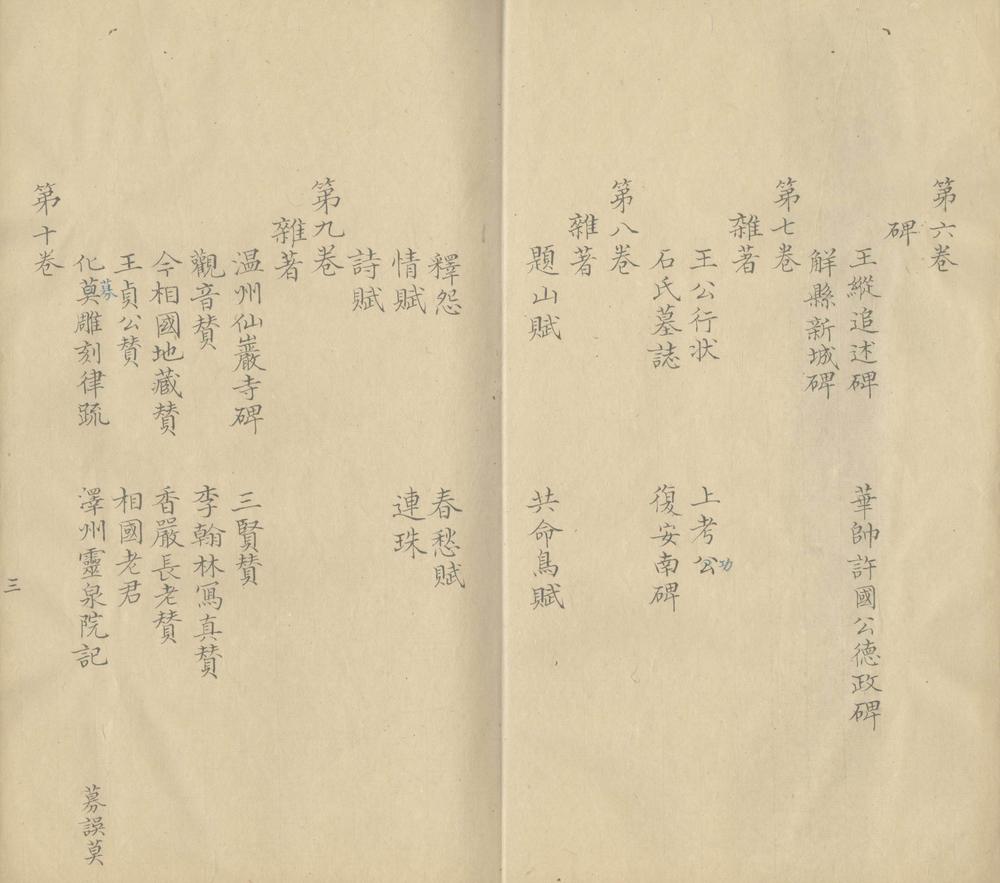 第六卷
碑
王縱追述碑　華帥許國公德政碑
解縣新城碑
第七卷
雜著
王公行状　上考公功
石氏墓誌　復安南碑
第八卷
雜著
題山賦　共命鳥賦
釋怨　春愁賦
情賦　連珠
詩賦
第九卷
雜著
温州仙巖寺碑　三賢賛
觀音賛　李翰林寫真賛
今相國地藏賛　香嚴長老賛
王貞公賛　相國老君
化莫募雕刻律疏　澤州靈泉院記　募誤莫
第十卷
三